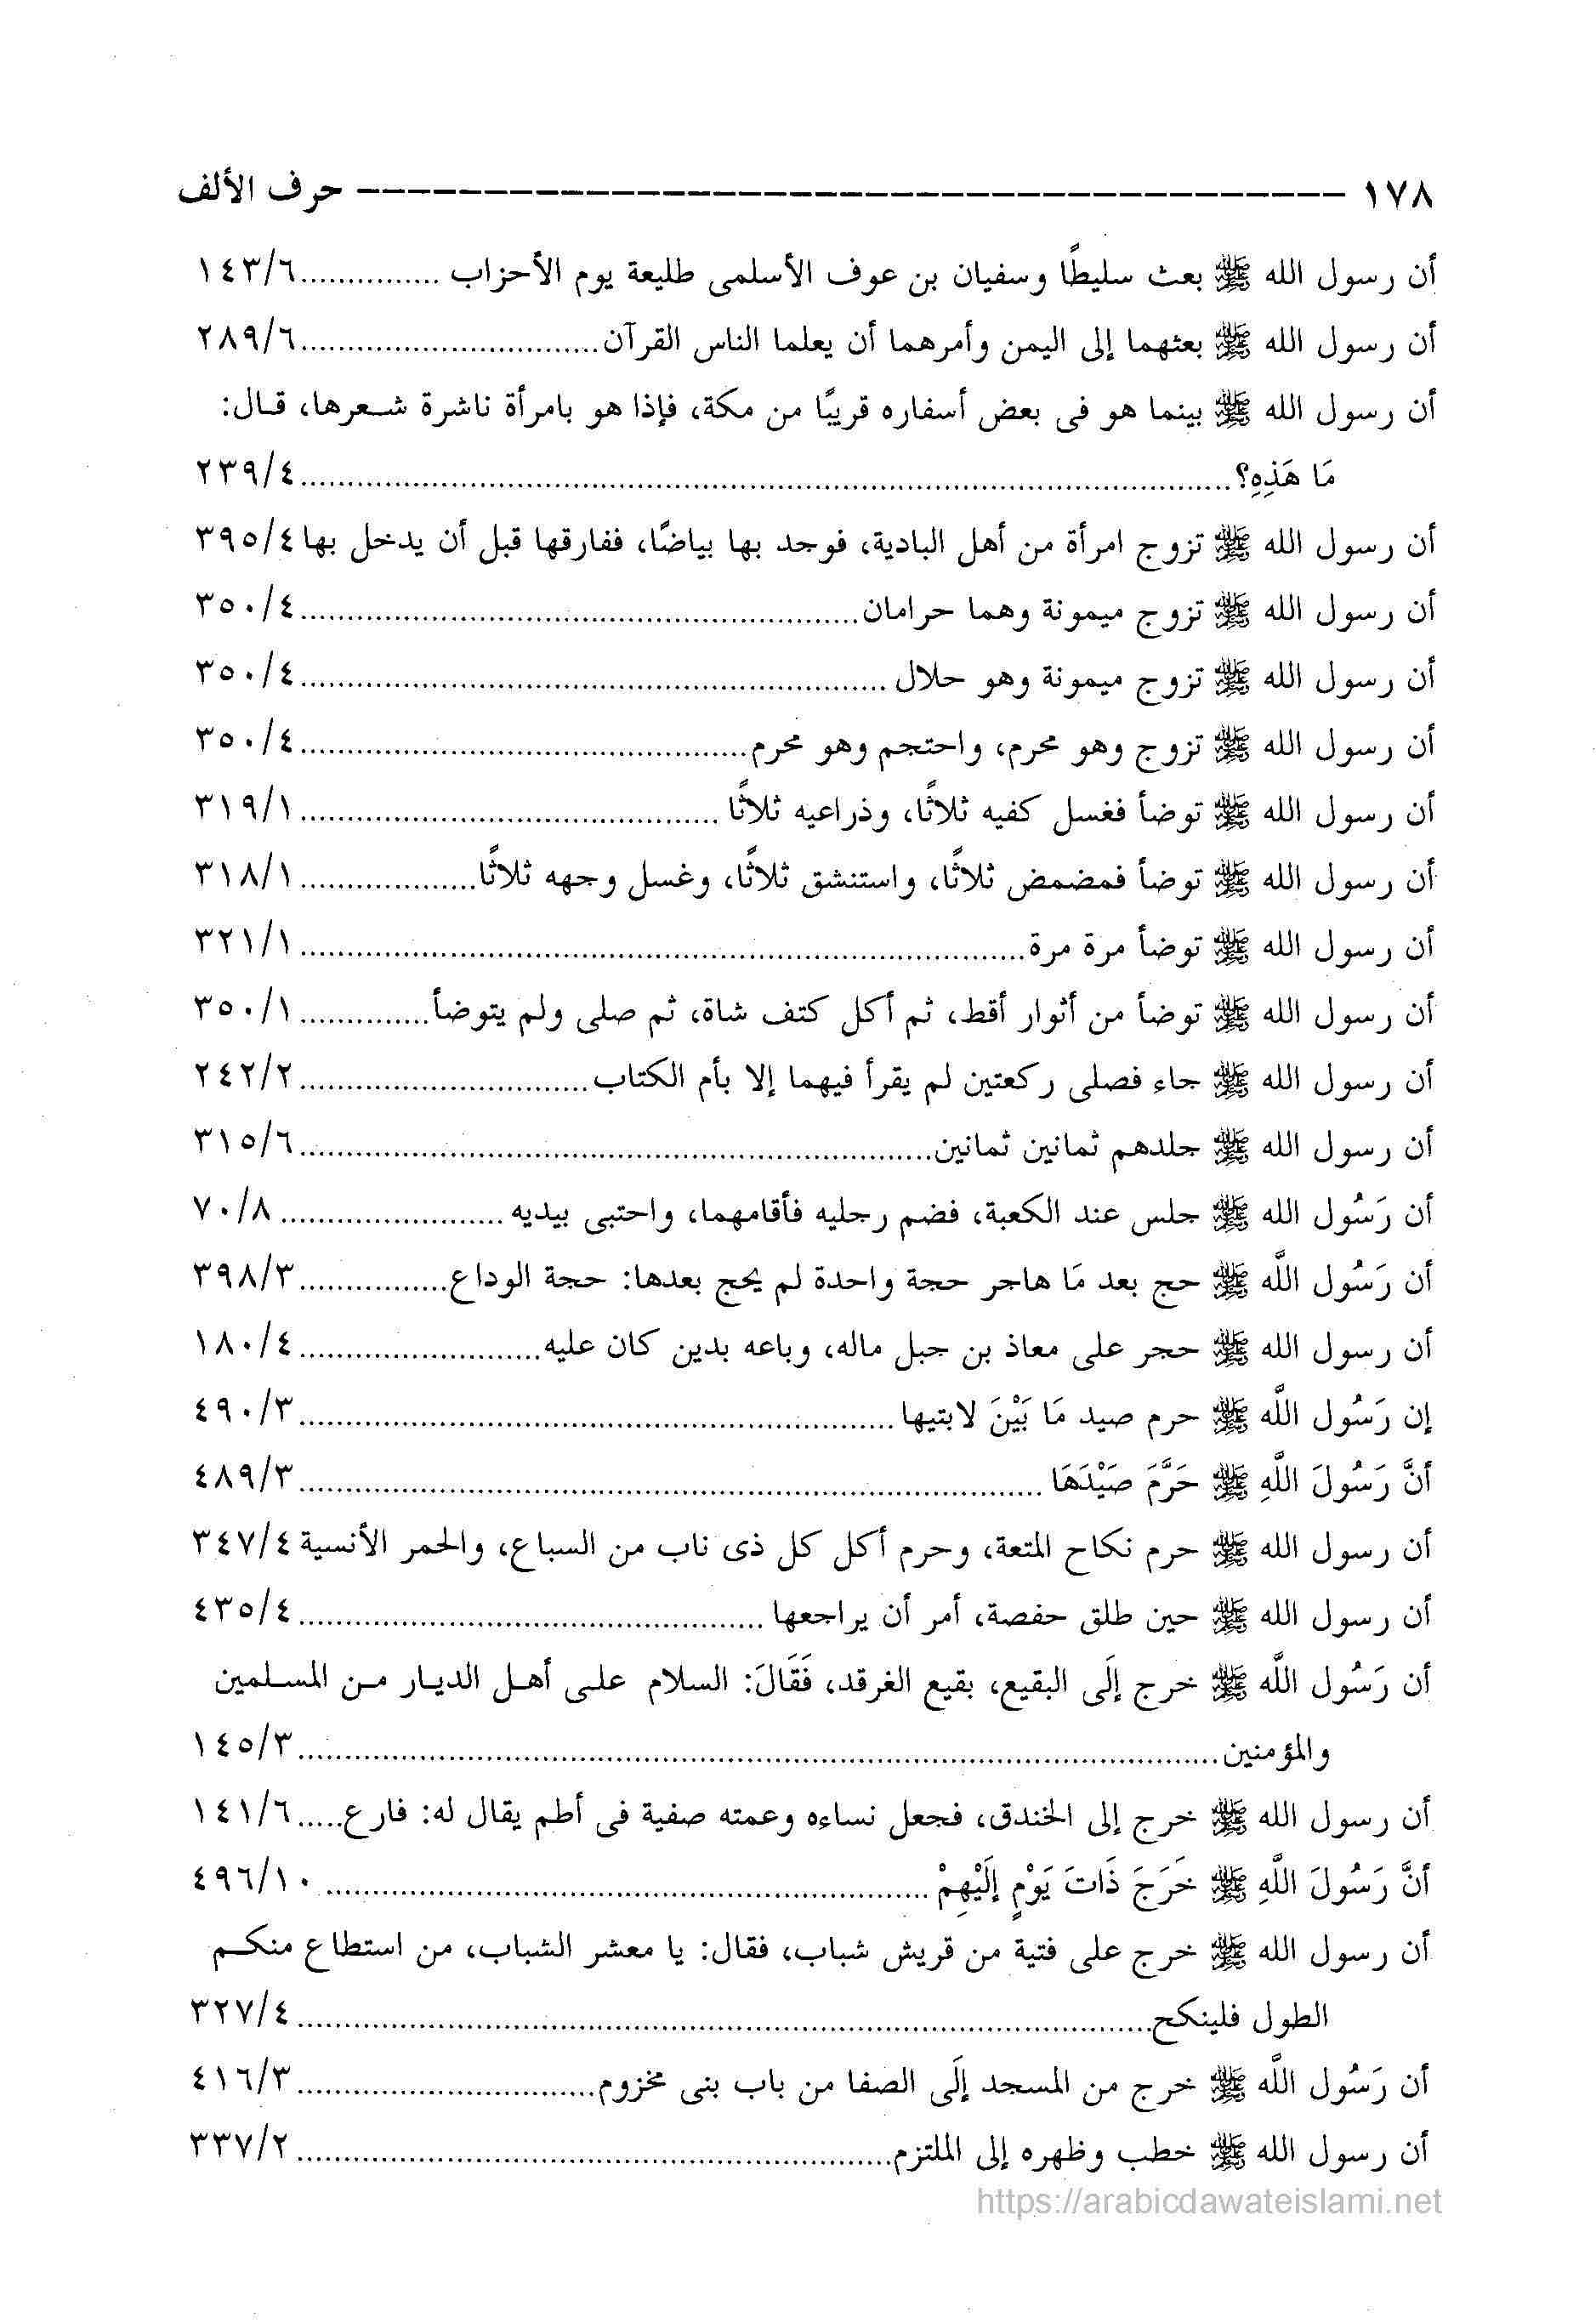 ١٧٨ ---------------------------------------- حرف الألف
أن رسول الله ﷺ بعث سليطًا وسفيان بن عوف الأسلمى طليعة يوم الأحزاب ...............١٤٣/٦
أن رسول الله ﷺ بعثهما إلى اليمن وأمرهما أن يعلما الناس القرآن................................٢٨٩/٦
أن رسول الله ﷺ بينما هو فى بعض أسفاره قريبًا من مكة، فإذا هو بامرأة ناشرة شعرها، قال:
مَا هَذِهِ؟....................................................................................................٢٣٩/٤
أن رسول الله ﷺ تزوج امرأة من أهل البادية، فوجد بها بياضًا، ففارقها قبل أن يدخل بها ٣٩٥/٤
أن رسول الله ﷺ تزوج ميمونة وهما حرامان............................................................٣٥٠/٤
أن رسول الله ﷺ تزوج ميمونة وهو حلال ...............................................................٣٥٠/٤
أن رسول الله ﷺ تزوج وهو محرم، واحتجم وهو محرم................................................٣٥٠/٤
أن رسول الله ﷺ توضأ فغسل كفيه ثلاثًا، وذراعيه ثلاثًا .............................................٣١٩/١
أن رسول الله ﷺ توضأ فمضمض ثلاثًا، واستنشق ثلاثًا، وغسل وجهه ثلاثًا...................٣١٨/١
أن رسول الله ﷺ توضأ مرة مرة..............................................................................٣٢١/١
أن رسول الله ﷺ توضأ من أثوار أقط، ثم أكل كتف شاة، ثم صلى ولم يتوضأ..............٣٥٠/١
أن رسول الله ﷺ جاء فصلى ركعتين لم يقرأ فيهما إلا بأم الكتاب...............................٢٤٢/٢
أن رسول الله ﷺ جلدهم ثمانين ثمانين....................................................................٣١٥/٦
أن رَسُول الله ﷺ جلس عند الكعبة، فضم رجليه فأقامهما، واحتبى بيديه ........................٧٠/٨
أن رَسُول اللَّه ﷺ حج بعد مَا هاجر حجة واحدة لم يحج بعدها: حجة الوداع................٣٩٨/٣
أن رسول الله ﷺ حجر على معاذ بن جبل ماله، وباعه بدين كان عليه..........................١٨٠/٤
إن رَسُول اللَّه ﷺ حرم صيد مَا بَيْنَ لابتيها ................................................................٤٩٠/٣
أنَّ رَسُولَ اللَّهِ ﷺ حَرَّمَ صَيْدَهَا ................................................................................٤٨٩/٣
أن رسول الله ﷺ حرم نكاح المتعة، وحرم أكل كل ذى ناب من السباع، والحمر الأنسية ٣٤٧/٤
أن رسول الله ﷺ حين طلق حفصة، أمر أن يراجعها ..................................................٤٣٥/٤
أن رَسُول اللَّه ﷺ خرج إلَى البقيع، بقيع الغرقد، فَقَالَ: السلام على أهل الديار من المسلمين
والمؤمنين...................................................................................................١٤٥/٣
أن رسول الله ﷺ خرج إلى الخندق، فجعل نساءه وعمته صفية فى أطم يقال له: فارع.....١٤١/٦
أنَّ رَسُولَ اللَّهِ ﷺ خَرَجَ ذَاتَ يَوْمٍ إلَيْهِمْ .................................................................٤٩٦/١٠
أن رسول الله ﷺ خرج على فتية من قريش شباب، فقال: يا معشر الشباب، من استطاع منكم
الطول فلينكح............................................................................................٣٢٧/٤
أن رَسُول اللَّه ﷺ خرج من المسجد إلَى الصفا من باب بنى مخزوم................................٤١٦/٣
أن رسول الله ﷺ خطب وظهره إلى الملتزم................................................................٣٣٧/٢
https://arabicdawateislami.net